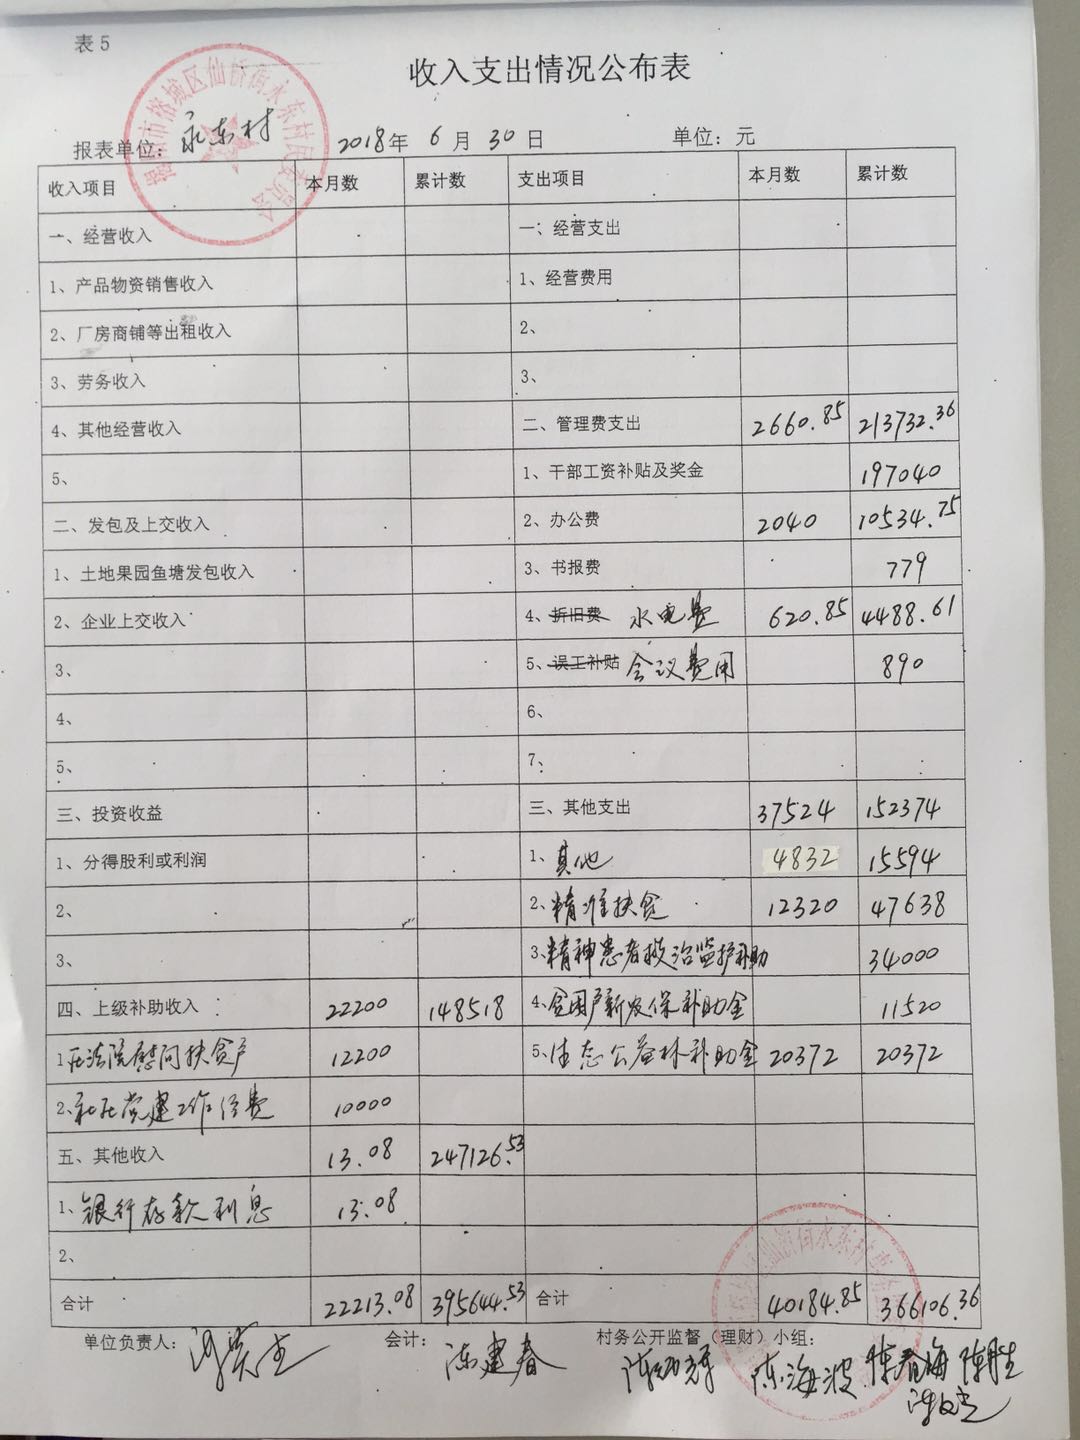 表5
收入支出情况公布表
报表单位：永东村 2018年6月30日 单位：元
收入项目 本月数 累计数 支出项目 本月数 累计数
一、经营收入 一、经营支出
1、产品物资销售收入 1、经营费用
2、厂房商铺等出租收入 2、
3、劳务收入 3、
4、其他经营收入 二、管理费支出 2660.85 213732.36
5、 1、干部工资补贴及奖金 197040
二、发包及上交收入 2、办公费 2040 10534.75
1、土地果园鱼塘发包收入 3、书报费 779
2、企业上交收入 4、折旧费 水电费 620.85 4488.61
3、 5、误工补贴 会议费用 890
4、 6、
5、 7、
三、投资收益 三、其他支出 37524 152374
1、分得股利或利润 1、其他 4832 15594
2、 2、精准扶贫 12320 47638
3、 3、精神患者救治监护补助 34000
四、上级补助收入 22200 148518 4、贫困户新农保补助金 11520
1、区法院慰问扶贫户 12200 5、生态公益林补助金 20372 20372
2、社区党建工作经费 10000
五、其他收入 13.08 247126.53
1、银行存款利息 13.08
2、
合计 22213.08 395644.53 合计 40184.85 366106.36
单位负责人： 会计：陈建春 村务公开监督（理财）小组：
陈海波 陈春海 陈胜